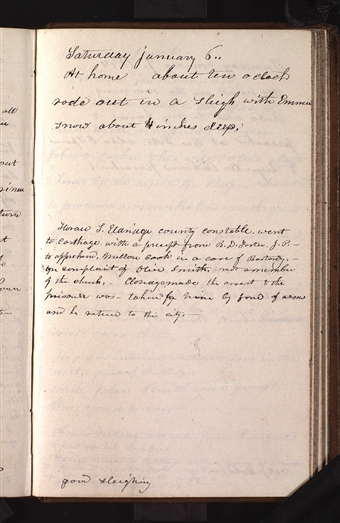 Saturday January 6..
At home about ten oclock
rode out in a sleigh with Emma
snow about 4 inches deep.
Horace S. Eldridge county constable. went
to Carthage with a precept from R. D. Foster. J. P.—
to apprehend, Milton Cook in a case of Bastardy.—
on complaint of Smith, not a member
of the church.— made the arrest & the
prisoner was taken from him by force of arms
and he return to this city—
good sleighing